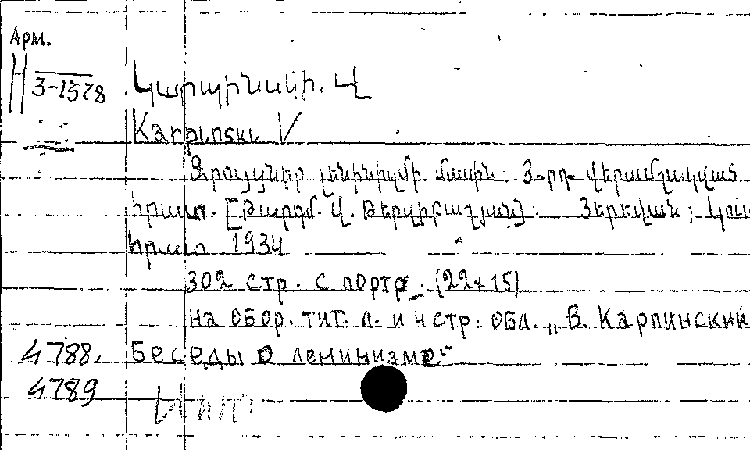 Арм.
3-1578 Կարպինսկի. Վ
Karpinski V
Զրույցներ լենինիզմի մասին. 3-րդ վերամշակված
հրատ. [Թարգմ. Վ. Թերզիբաշյան]. Յերեվան; Կուս
հրատ 1934
302 стр. с портр. (22×15)
На обор. тит. л. и 4 стр. обл. „В. Карпинский
4788. Беседы о ленинизме"
4789